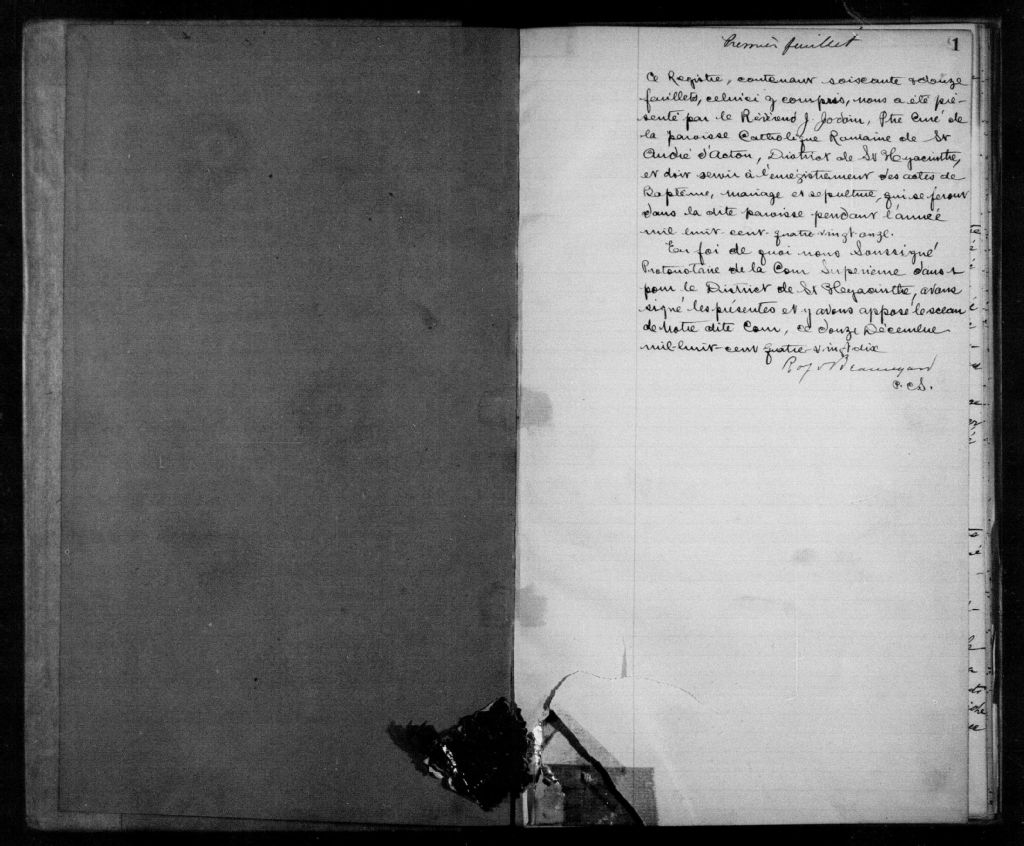 Premier feuillet
1
Ce Registre, contenant soixante & douze
feuillets, celui-ci y compris, nous a été pré-
senté par le Révérend J. Jodoin, Ptre Curé de
la paroisse Catholique Romaine de St
André d'Acton, District de St Hyacinthe,
et doit servir à l'enregistrement des actes de
Baptême, mariage et sépulture, qui se feront
dans la dite paroisse pendant l'année
mil huit cent quatre vingt onze.
En foi de quoi nous Soussigné
Protonotaire de la Cour Supérieure dans &
pour le District de St Hyacinthe, avons
signé les présentes et y avons apposé le sceau
de Notre dite Cour, ce douze Décembre
mil-huit-cent quatre vingt dix
Roy & Beauregard
P. C. S.